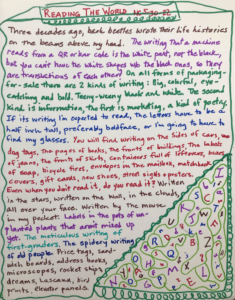 READING THE WORLD
Three decades ago, bark beetles wrote their life histories
on the beams above my head. The writing that a machine
reads from a QR or bar code is the white part, not the black,
but you can't have the white shapes w/o the black ones, so they
are translations of each other. On all forms of packaging-
for-sale there are 2 kinds of writing: Big, colorful, eye-
catching and bold. Teeny-weeny black and white. The second
kind is information, the first is marketing, a kind of poetry.
If its writing I'm expected to read, the letters have to be a
half inch tall, preferably boldface, or I'm going to have to
find my glasses. You will find writing on the sides of cars,
dog tags, the pages of books, the fronts of buildings, the labels
of jeans, the fronts of shirts, containers full of
of soap, bicycle tires, envelopes in the mailbox, matchbook
covers, gift cards, new shoes, street signs & posters.
Even when you don't read it, do you read it? Written
in the stars, written in the sand, in the clouds,
all over your face. Written by the mouse
in my pocket. Labels in the pots of
planted plants that aren't mixed up
yet. The meticulous writing of
first-graders. The spidery writing
of old people. Price tags, sand-
wich boards, address books,
microscopes, rocket ships,
dreams, bananas, foot
prints, elevator panels.